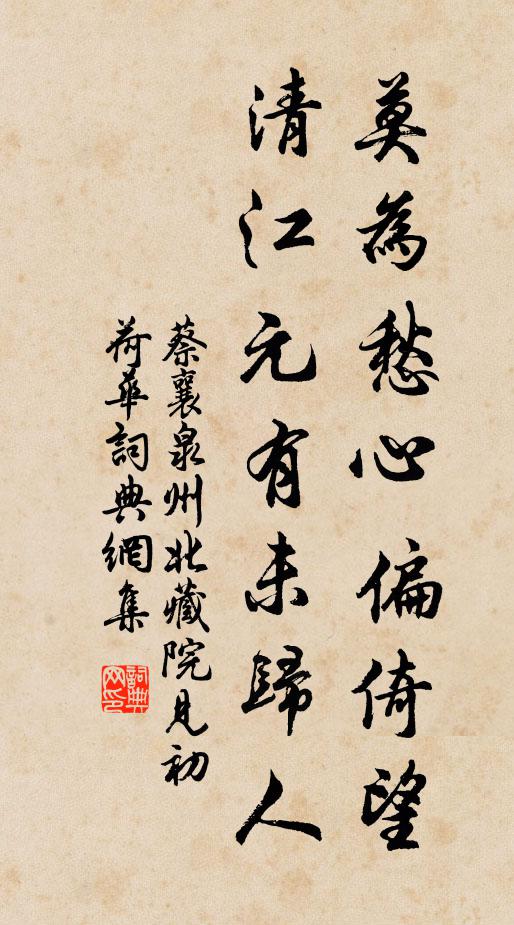 莫為愁心偏倚望
清江元有未歸人
蔡襄泉州北藏院見初
荷華詞典網集
詞典
网印